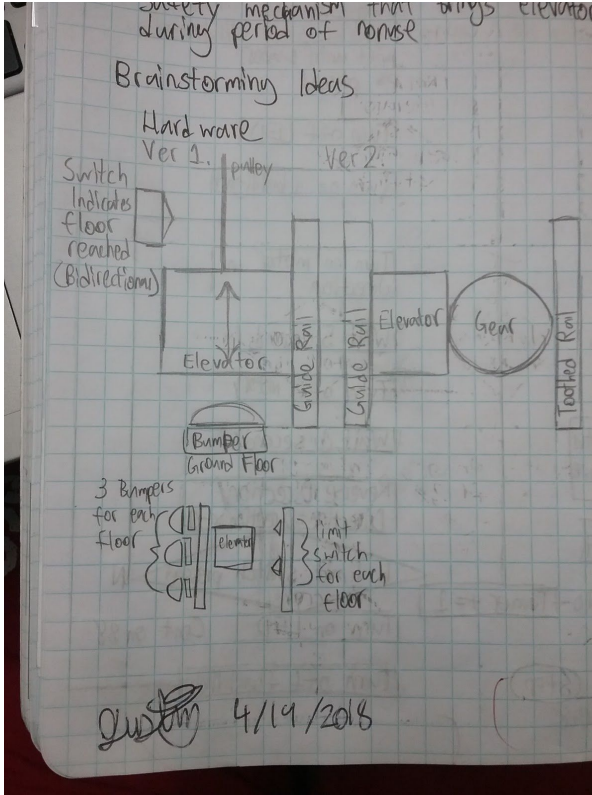 Safety mechanism that brings elevator
during period of nonuse
Brainstorming Ideas
Hardware
Ver 1.
pulley
Ver 2.
Switch
Indicates
floor
reached
(Bidirectional)
Elevator
Guide Rail
Guide Rail
Elevator
Gear
Toothed Rail
Bumper
Ground Floor
3 Bumpers
for each
floor
elevator
limit
switch
for each
floor
4/19/2018